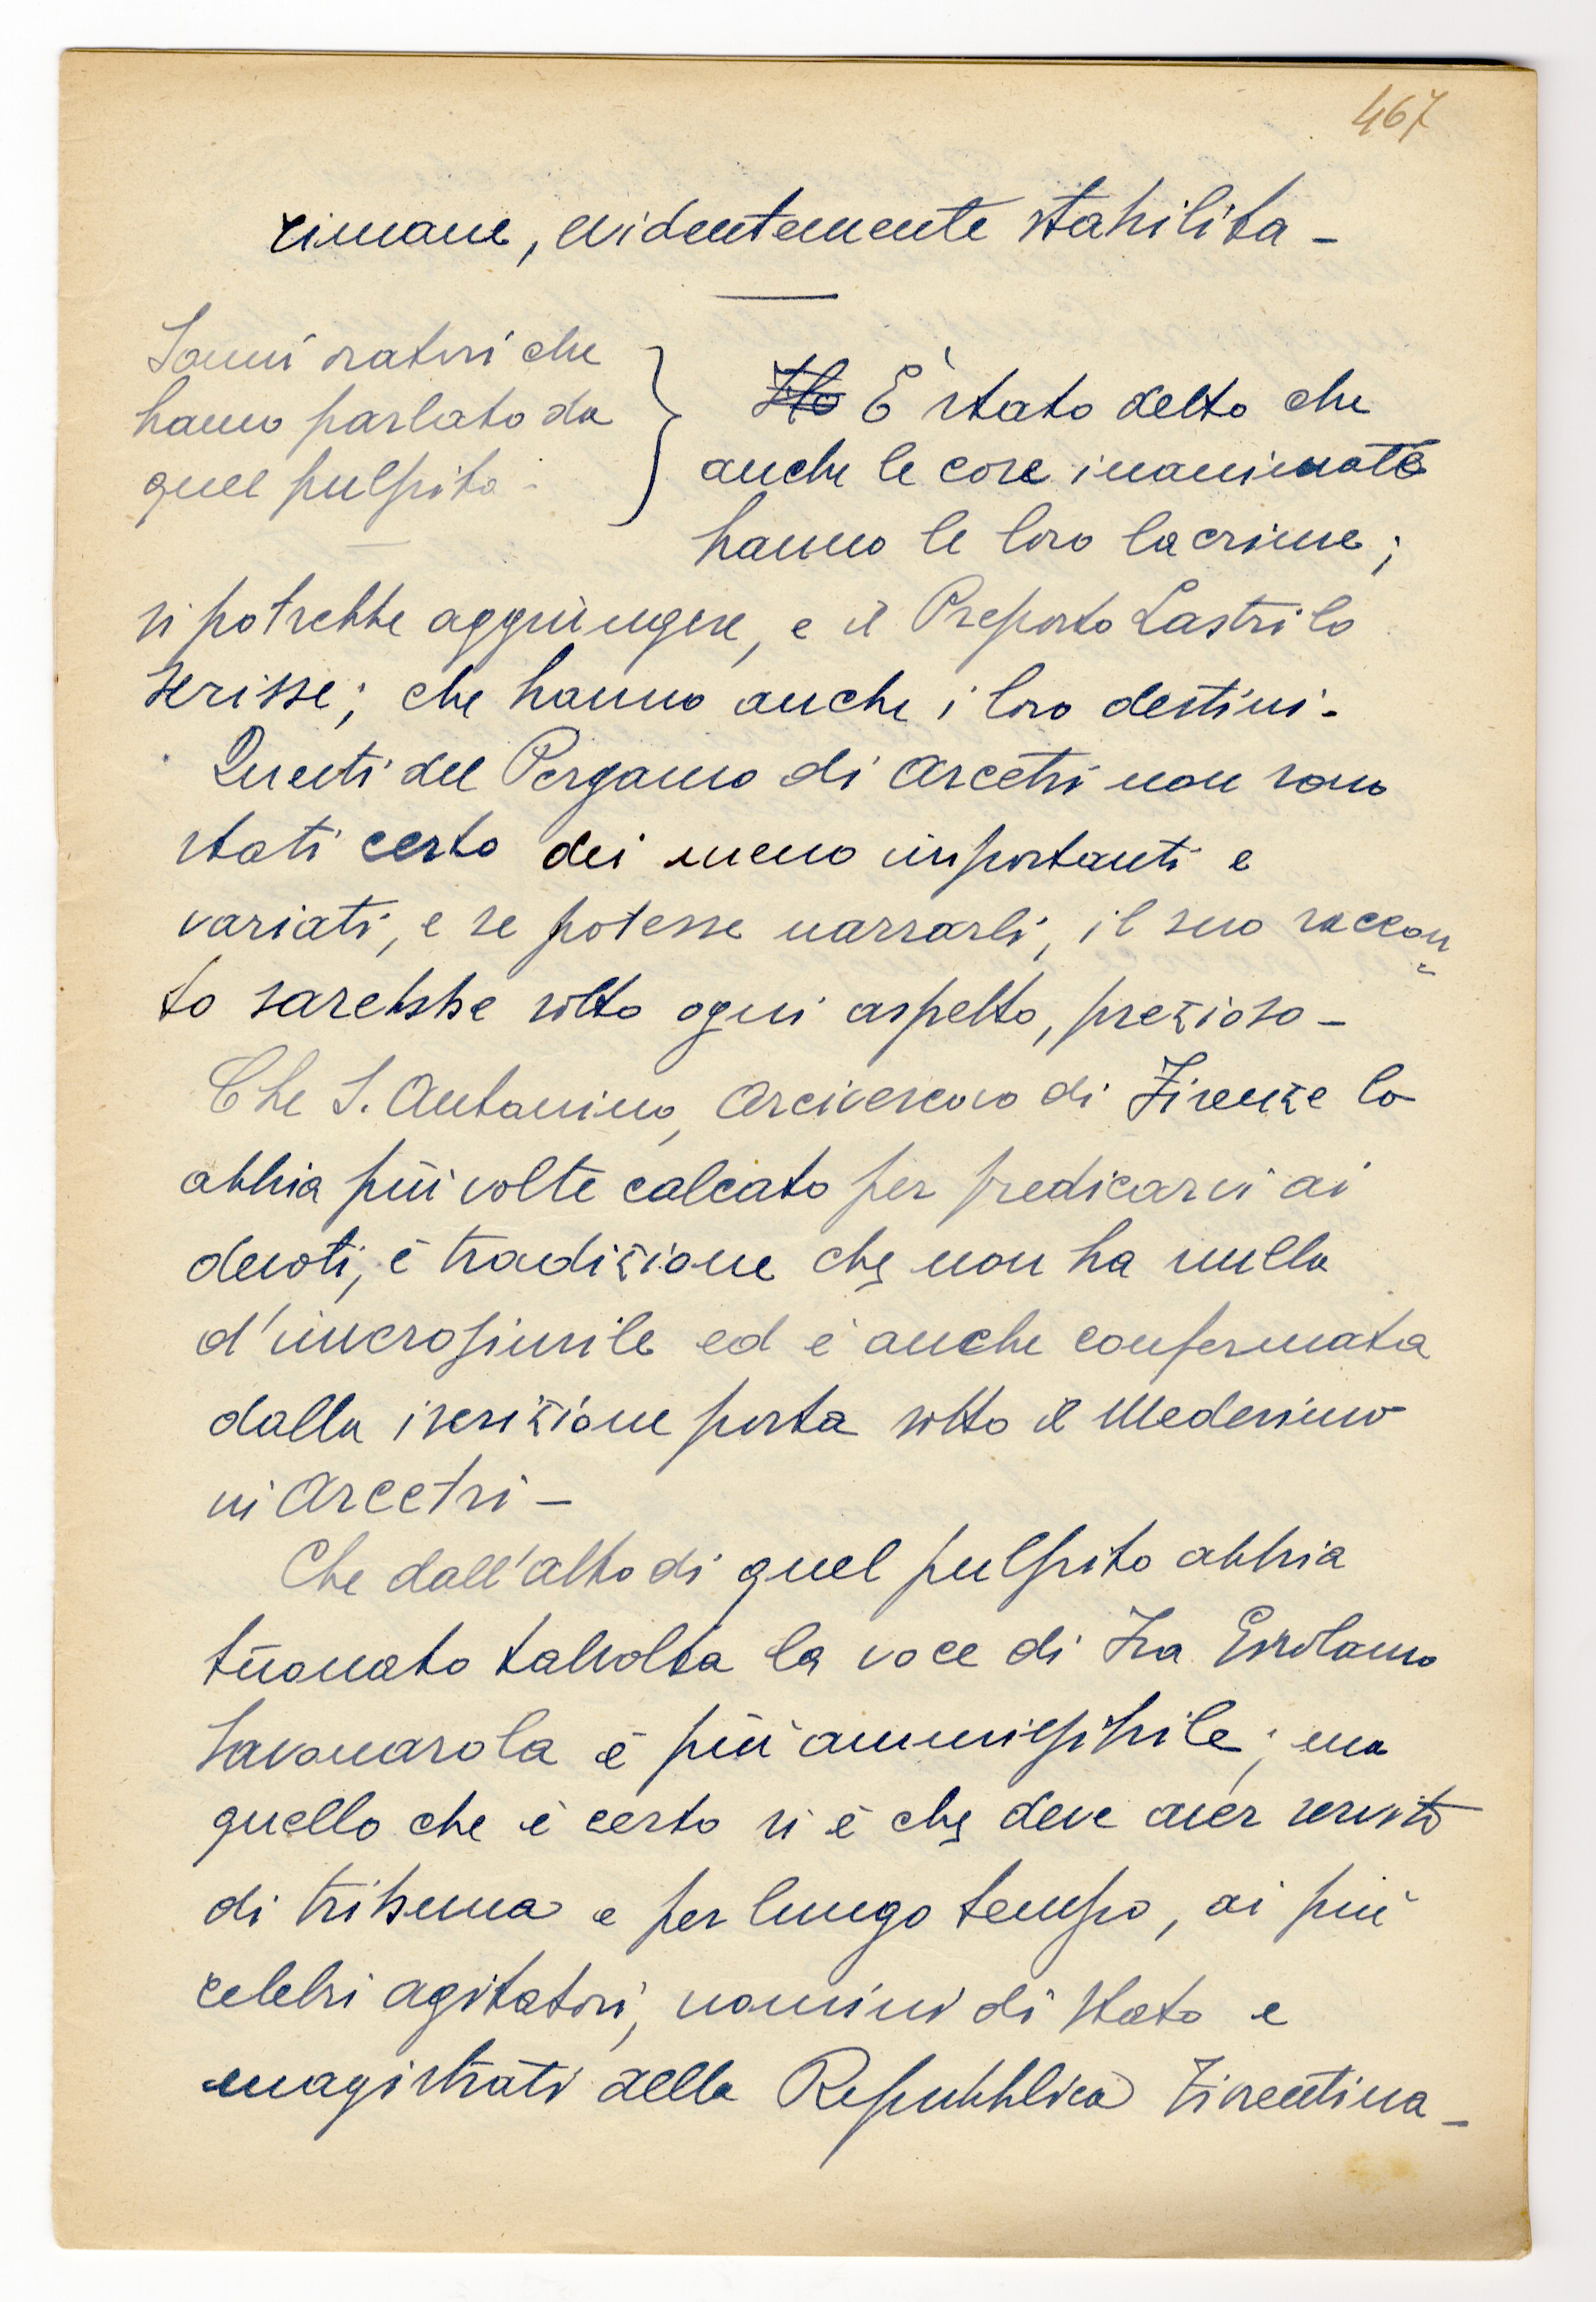 467
rimane, evidentemente stabilita -
Sommi oratori che
hanno parlato da
quel pulpito -
È stato detto che
anche le cose inanimate
hanno le loro lacrime;
si potrebbe aggiungere, e il Preposto Lastri lo
scrisse; che hanno anche i loro destini -
Questi del Pergamo di Arcetri non sono
stati certo dei meno importanti e
variati, e se potesse narrarli, il suo raccon=
to sarebbe sotto ogni aspetto, prezioso -
Che S. Antonino, Arcivescovo di Firenze lo
abbia più volte calcato per predicarvi ai
devoti, è tradizione che non ha nulla
d'inverosimile ed è anche confermata
dalla iscrizione posta sotto il Medesimo
in Arcetri -
Che dall'alto di quel pulpito abbia
tuonato talvolta la voce di Fra Girolamo
Savonarola è più ammissibile; ma
quello che è certo si è che deve aver servito
di tribuna e per lungo tempo, ai più
celebri agitatori, uomini di Stato e
magistrati della Repubblica Fiorentina -